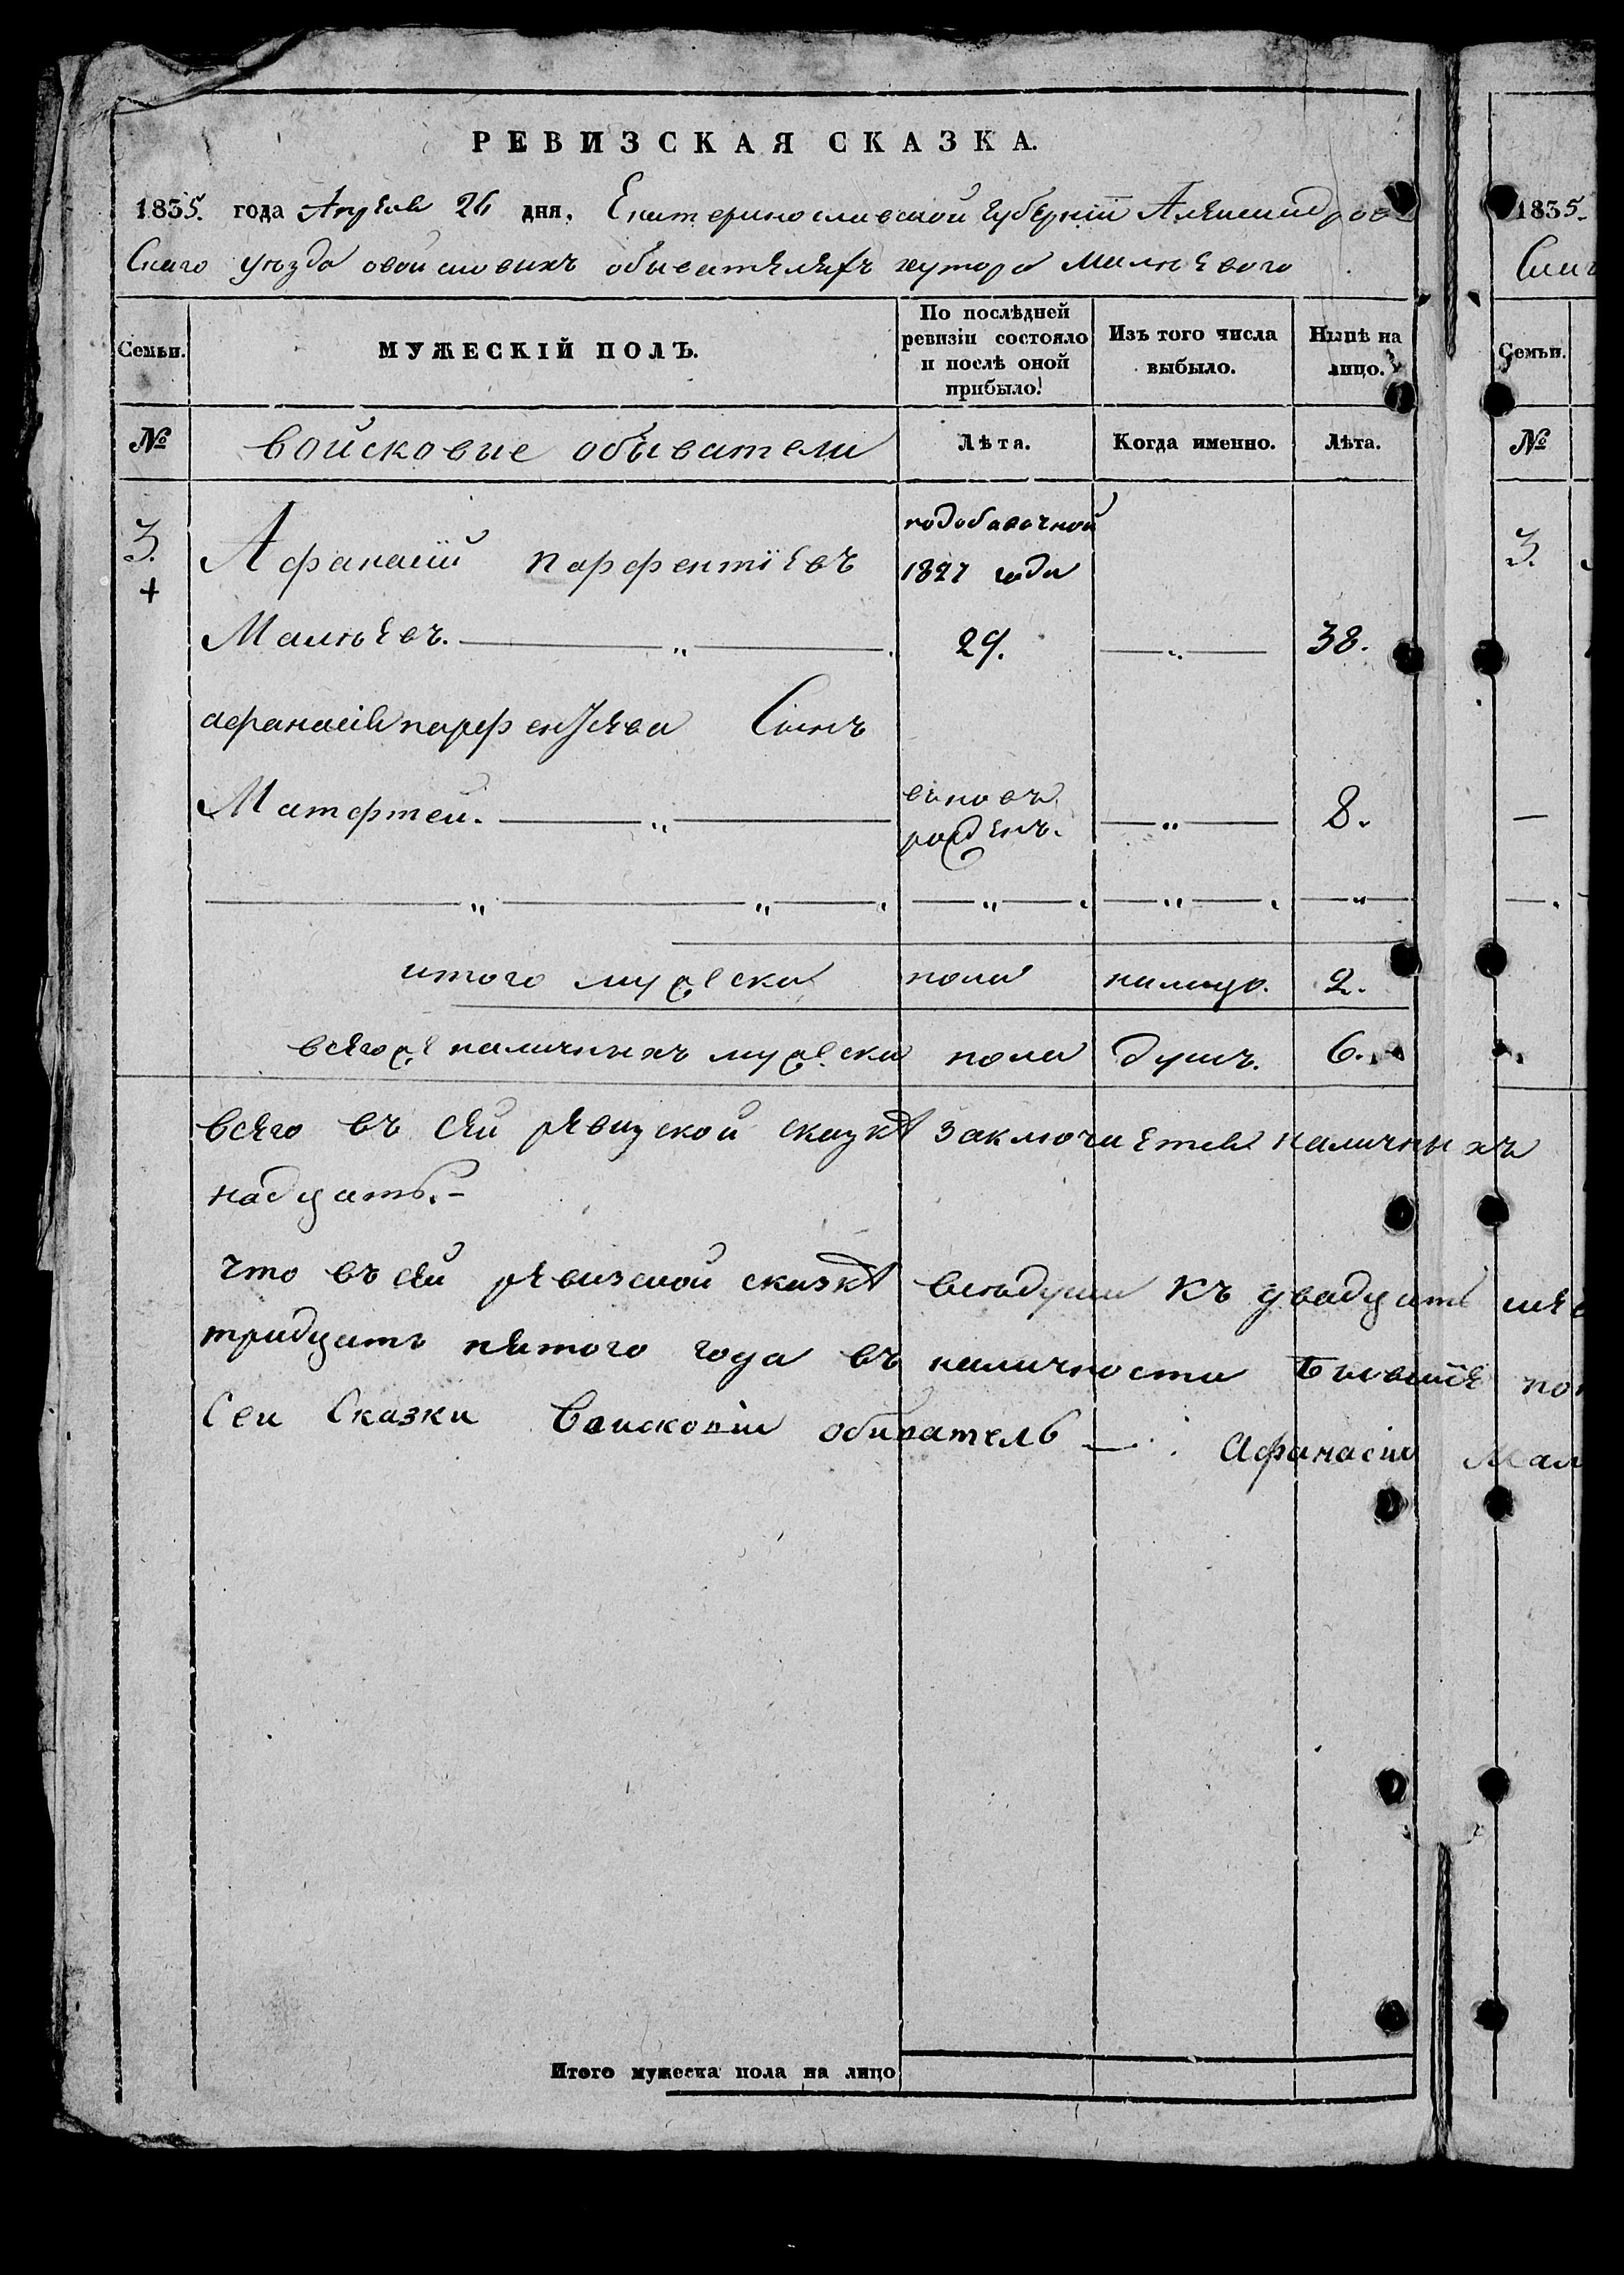 РЕВИЗСКАЯ СКАЗКА.
1835. года Апреля 26 дня. Екатеринославской губернiи Александров
Скаго уѣзда овойсковихъ обывателяхъ хутора Малнѣвого
Семьи. МУЖЕСКIЙ ПОЛЪ. По послѣдней ревизiи состояло и послѣ оной прибыло. Изъ того числа выбыло. Нынѣ на лицо.
№ войсковые обыватели Лѣта. Когда именно. Лѣта.
3. Афанасiй Парфентiевъ подобавочной 1827 года
+
Малнѣевъ. 29. 38.
афанасiя парфентiева Сынъ
Матфтей. вновъ рожденъ. 8.
итого мужеска пола налицо. 2.
всегоже наличныхъ мужеска пола душъ. 6.
всего въ сей ревизской сказкѣ заключается наличныхъ
надцать.
что въ сей ревизской сказкѣ всѣдуши къ двадцать
тридцать пятого года въ наличности бывшiе
Сеи Сказки Воисковiи обиватель Афанасiи Мал
Итого мужеска пола на лицо
1835.
Скаг
Семьи.
№
3.